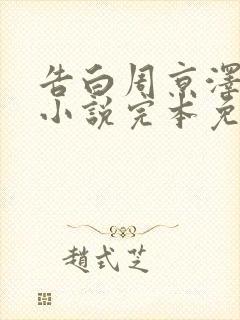 告白周京澤
小說完本免
趙式芝